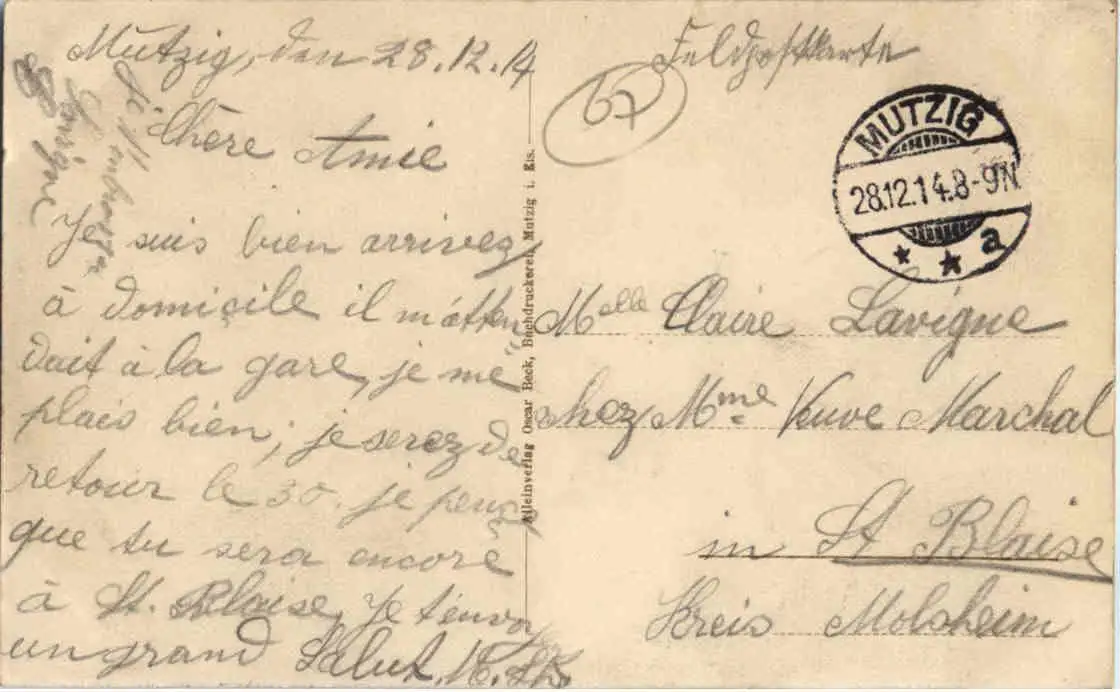 Mutzig, den 28.12.14
Chère Amie
Je suis bien arrivez
à domicile il m'atten-
dait à la gare, je me
plais bien; je serez de
retour le 30. je pense
que tu sera encore
à St. Blaise, Je t'envoy
un grand Salut.
Alleinverlag Oscar Beck, Buchdruckerei, Mutzig i. Els.
Feldpostkarte
67
MUTZIG
28.12.14.8-9N.
* * a
Melle Claire Lavigne
chez Mme Veuve Marchal
in St Blaise
Kreis Molsheim